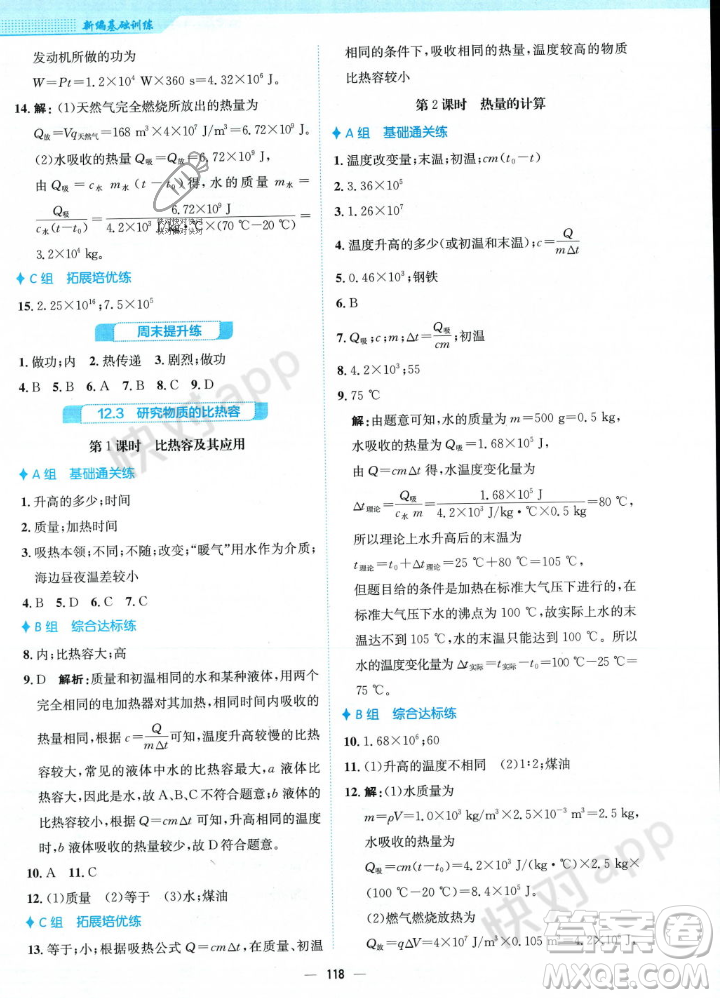 新编基础训练
发动机所做的功为
W=Pt=1.2×10⁴ W×360 s=4.32×10⁶ J
14. 解:(1)天然气完全燃烧所放出的热量为
Q放=Vq天然气=168 m³×4×10⁷ J/m³=6.72×10⁹ J
(2)水吸收的热量为Q吸=Q放=6.72×10⁹ J
由Q吸=c水 m水(t-t₀)得,水的质量为
Q吸/c水(t-t₀)=6.72×10⁹ J/4.2×10³ J/kg·℃×(70 ℃-20 ℃)=
3.2×10⁴ kg.
C组 拓展培优练
15. 2.25×10¹⁶;7.5×10⁵
周末提升练
1. 做功;内 2. 热传递 3. 剧烈;做功
4. B 5. B 6. A 7. B 8. D
12.3 研究物质的比热容
第1课时 比热容及其应用
A组 基础通关练
1. 升高的多少;时间
2. 质量;加热时间
3. 吸热本领;不同;不随;改变;“暖气”用水作为介质;
海边昼夜温差较小
4. B 5. D 6. A 7. C
B组 综合达标练
8. 内;比热容大;高
9. D 解析:质量和初温相同的水和某种液体,用两个
完全相同的电加热器对其加热,相同时间内吸收的
热量相同,根据c=Q/mΔt可知,温度升高较慢的比热
容较大,常见的液体中水的比热容最大,a液体的比
热容大于b,可知A、B、C均不符合题意.根据吸热
公式及比热容关系可知,Q=cmΔt,升高相同的温度
时,b液体吸收的热量较小,故D符合题意.
10. A 11. C
12. (1)质量 (2)等于 (3)水;煤油
C组 拓展培优练
13. 等于;小;根据吸热公式Q=cmΔt,在质量、初温
相同的条件下,吸收相同的热量,温度变化高的物质
比热容较小
第2课时 热量的计算
A组 基础通关练
1. 温度改变量;末温;初温;cm(t₀-t)
2. 3.36×10⁵
3. 1.26×10⁷
4. 温度升高的多少(或初温和末温);c=Q/mΔt
5. 0.46×10³;钢铁
6. B
7. Q吸;c;m;Δt;Q吸/cm;初温
8. 4.2×10³;55
9. 75 ℃
解:由题意可知,水的质量为m=500 g=0.5 kg,
水吸收的热量为Q吸=1.68×10⁵ J,
由Q=cmΔt得,水的温度变化量为
Δt理论=Q吸/c水 m=1.68×10⁵ J/4.2×10³ J/kg·℃×0.5 kg=80 ℃,
所以理论上水升高后的末温为
t理论=t₀+Δt理论=25 ℃+80 ℃=105 ℃,
但题目给的条件是加热在标准大气压下进行的,而
在标准大气压下水的沸点为100 ℃,故实际上水的末
温达不到105 ℃,水的末温只能达到100 ℃,所以,
水的温度实际变化值Δt实际=t实际-t₀=100 ℃-25 ℃=
75 ℃.
B组 综合达标练
10. 1.68×10⁵;60
11. (1)升高的温度不相同 (2)1:2;煤油
12. 解:(1)水质量为
m=ρV=1.0×10³ kg/m³×2.5×10⁻³ m³=2.5 kg
水吸收的热量为
Q吸=cmΔt=4.2×10³ J/(kg·℃)×2.5 kg×
(100 ℃-20 ℃)=8.4×10⁵ J
(2)燃气燃烧放热为
Q放=qΔV=4×10⁷ J/m³
118
快对app
快对app
快对app
答案圈